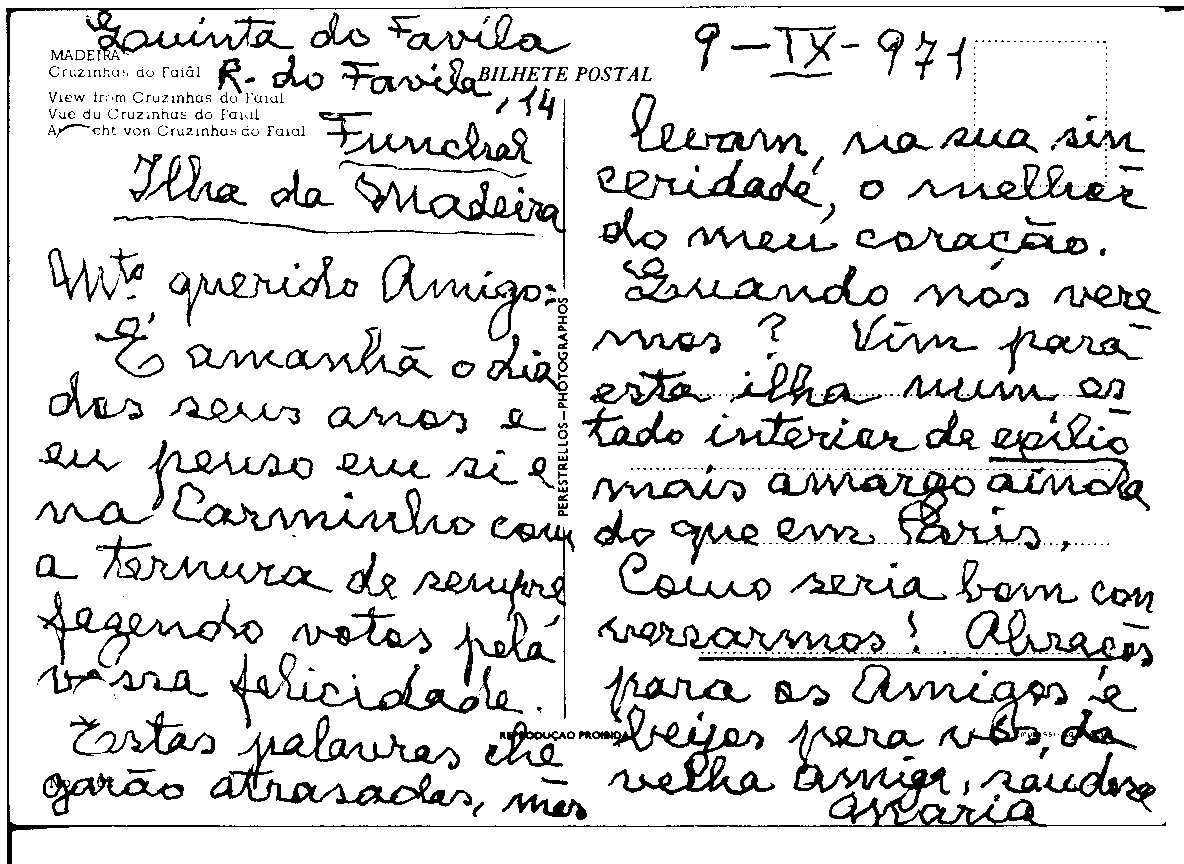 Quinta do Favila
R. do Favila, 14
Funchal
Ilha da Madeira
9-IX-971
MADEIRA
Cruzinhas do Faial
View from Cruzinhas do Faial
Vue du Cruzinhas do Faial
Ansicht von Cruzinhas do Faial
BILHETE POSTAL
Mto. querido Amigo:
É amanhã o dia
dos seus anos e
eu penso em si e
na Carminho com
a ternura de sempre
fazendo votos pela
vossa felicidade.
Estas palavras che
garão atrasadas, mas
PERESTRELLOS-PHOTOGRAPHOS
REPRODUÇÃO PROIBIDA
levam, na sua sin
ceridade, o melhor
do meu coração.
Quando nos vere
mos? Vim para
esta ilha num es
tado interior de exílio
mais amargo ainda
do que em Paris.
Como seria bom con
versarmos! Abraços
para os Amigos e
beijos para vós, da
velha amiga, saudosa
Maria